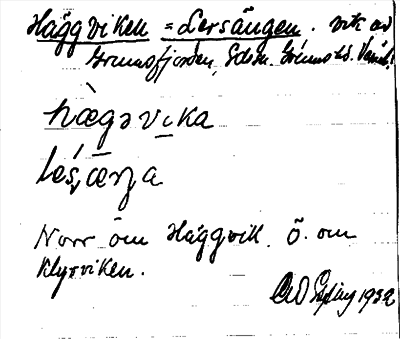 Häggviken = Lersängen. vik av
Grumsfjorden, Eds sn. Grums hd. Värml.
hæ̀gəvika
lés̨æŋa
Norr om Häggvik. Ö. om
Klyvviken.
1932